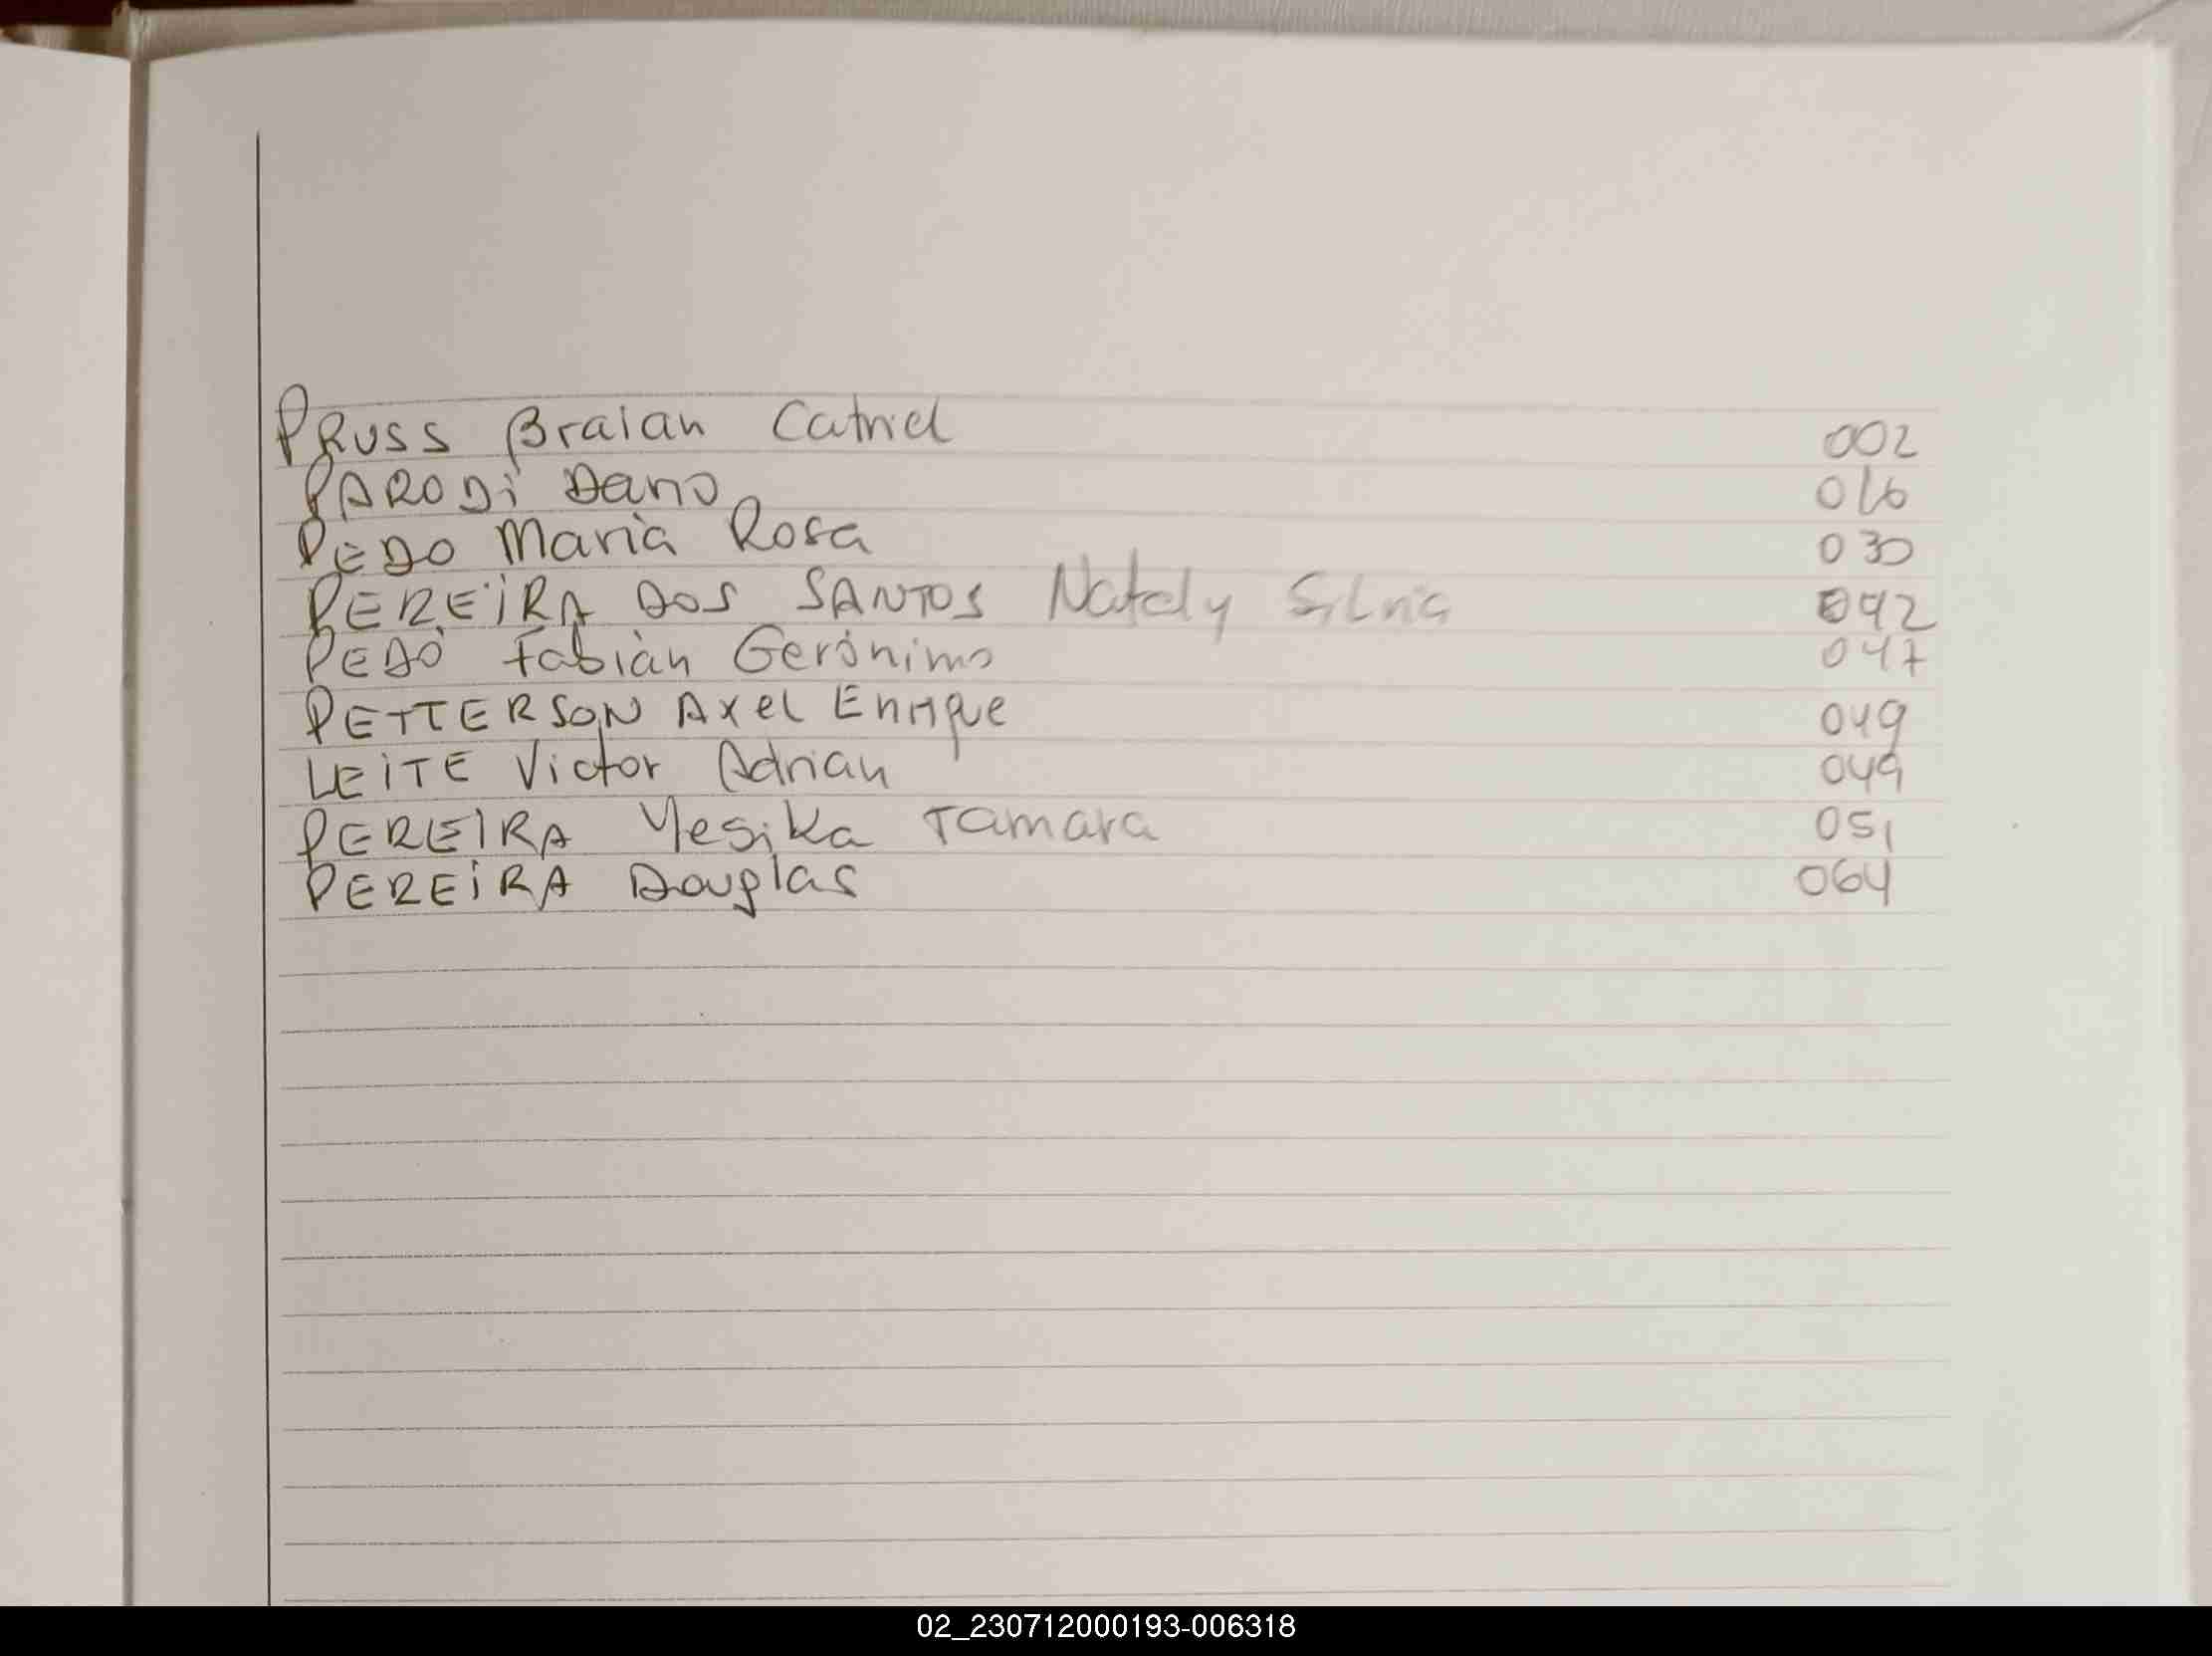 PRUSS Braian Catriel 002
PARODi Dario 016
PEDO Maria Rosa 030
PEREiRA DOS SANTOS Nataly Silvia 042
PEDO Fabián Gerónimo 047
PETTERSON Axel Enrique 049
LEiTE Victor Adrian 049
PEREIRA Yesika Tamara 051
PEREiRA Douglas 064
02_230712000193-006318